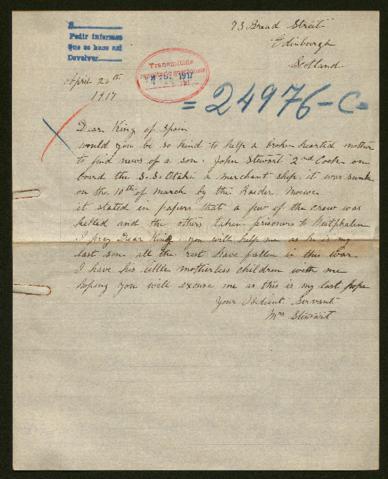 73 Broad Street
Edinburgh
Scotland
Pedir informes
Que se hace así
Devolver
Transmitido
1917
April 20th
1917
= 24976-C=
Dear King of Spain
would you be so kind to help a broken hearted mother
to find news of a son. John Stewart 2nd Cook on
board the S.S. Otaki a merchant ship. it was sunk
on the 10th of march by the Raider. Moewe.
it stated in papers that a few of the crew was
killed and the others taken prisoners to Westphalen
I pray Dear King you will help me as he is my
last son all the rest have fallen in this war.
I have his little motherless children with me
hoping you will excuse me as this is my last hope
Your Obedient Servant
Mrs Stewart